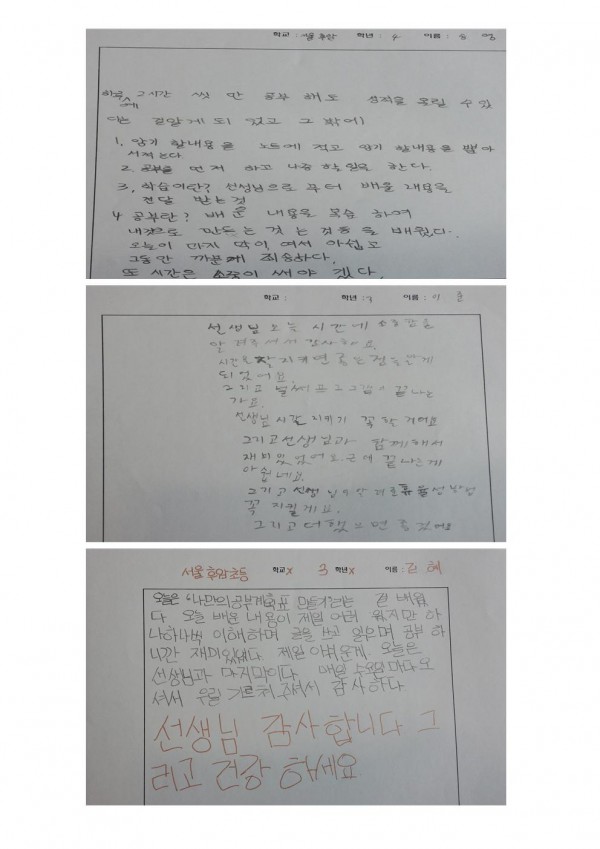 학교 : 서울후암 학년 : 4 이름 : 영
하루에 2시간 씩 만 공부 해도 성적을 올릴 수 있
다는 걸 알게 되 었고 그 밖에
1, 암기 할내용을 노트에 적고 암기 할내용을 뽑아
서 적는다.
2. 공부를 먼저 하고 나중 할일을 한다.
3, 학습이란? 선생님으로 부터 배울 내용을
전달 받는 것
4 공부란? 배운 내용을 복습 하여
내것으로 만드는 것 는 것등을 배웠다.
오늘이 마지 막이, 여서 아쉽고
그동안 까분게 죄송하다.
또 시간은 소중이 써야 겠다.
학교 : 학년 : 이름 : 이
선생님 오늘 시간에 소중함을
알려주셔서 감사해요.
시간을 잘 지키면 좋은 점을 알게
되었어요.
그리고 벌써 프로그램이 끝나는
가요.
선생님 시간 지키기 꼭 할 거에요
그리고 선생님과 함께해서
재미있었어요. 근데 끝나는게
아쉽네요.
그리고 선생님
꼭 지킬게요.
그리고 더했으면 좋겠어요
서울후암초등 학교x 3 학년x 이름 : 혜
오늘은 '나만의 공부계획표 만들기'라는 걸 배웠
다 오늘 배운 내용이 제일 어려 웠지만 하
나하나씩 이해하며 글을 쓰고 읽으며 공부 하
니깐 재미있었다. 제일 아쉬운게 오늘은
선생님과 마지막이다. 매일 수요일 마다 오
셔서 우릴 가르쳐 주셔서 감사하다
선생님 감사합니다 그
리고 건강 하세요